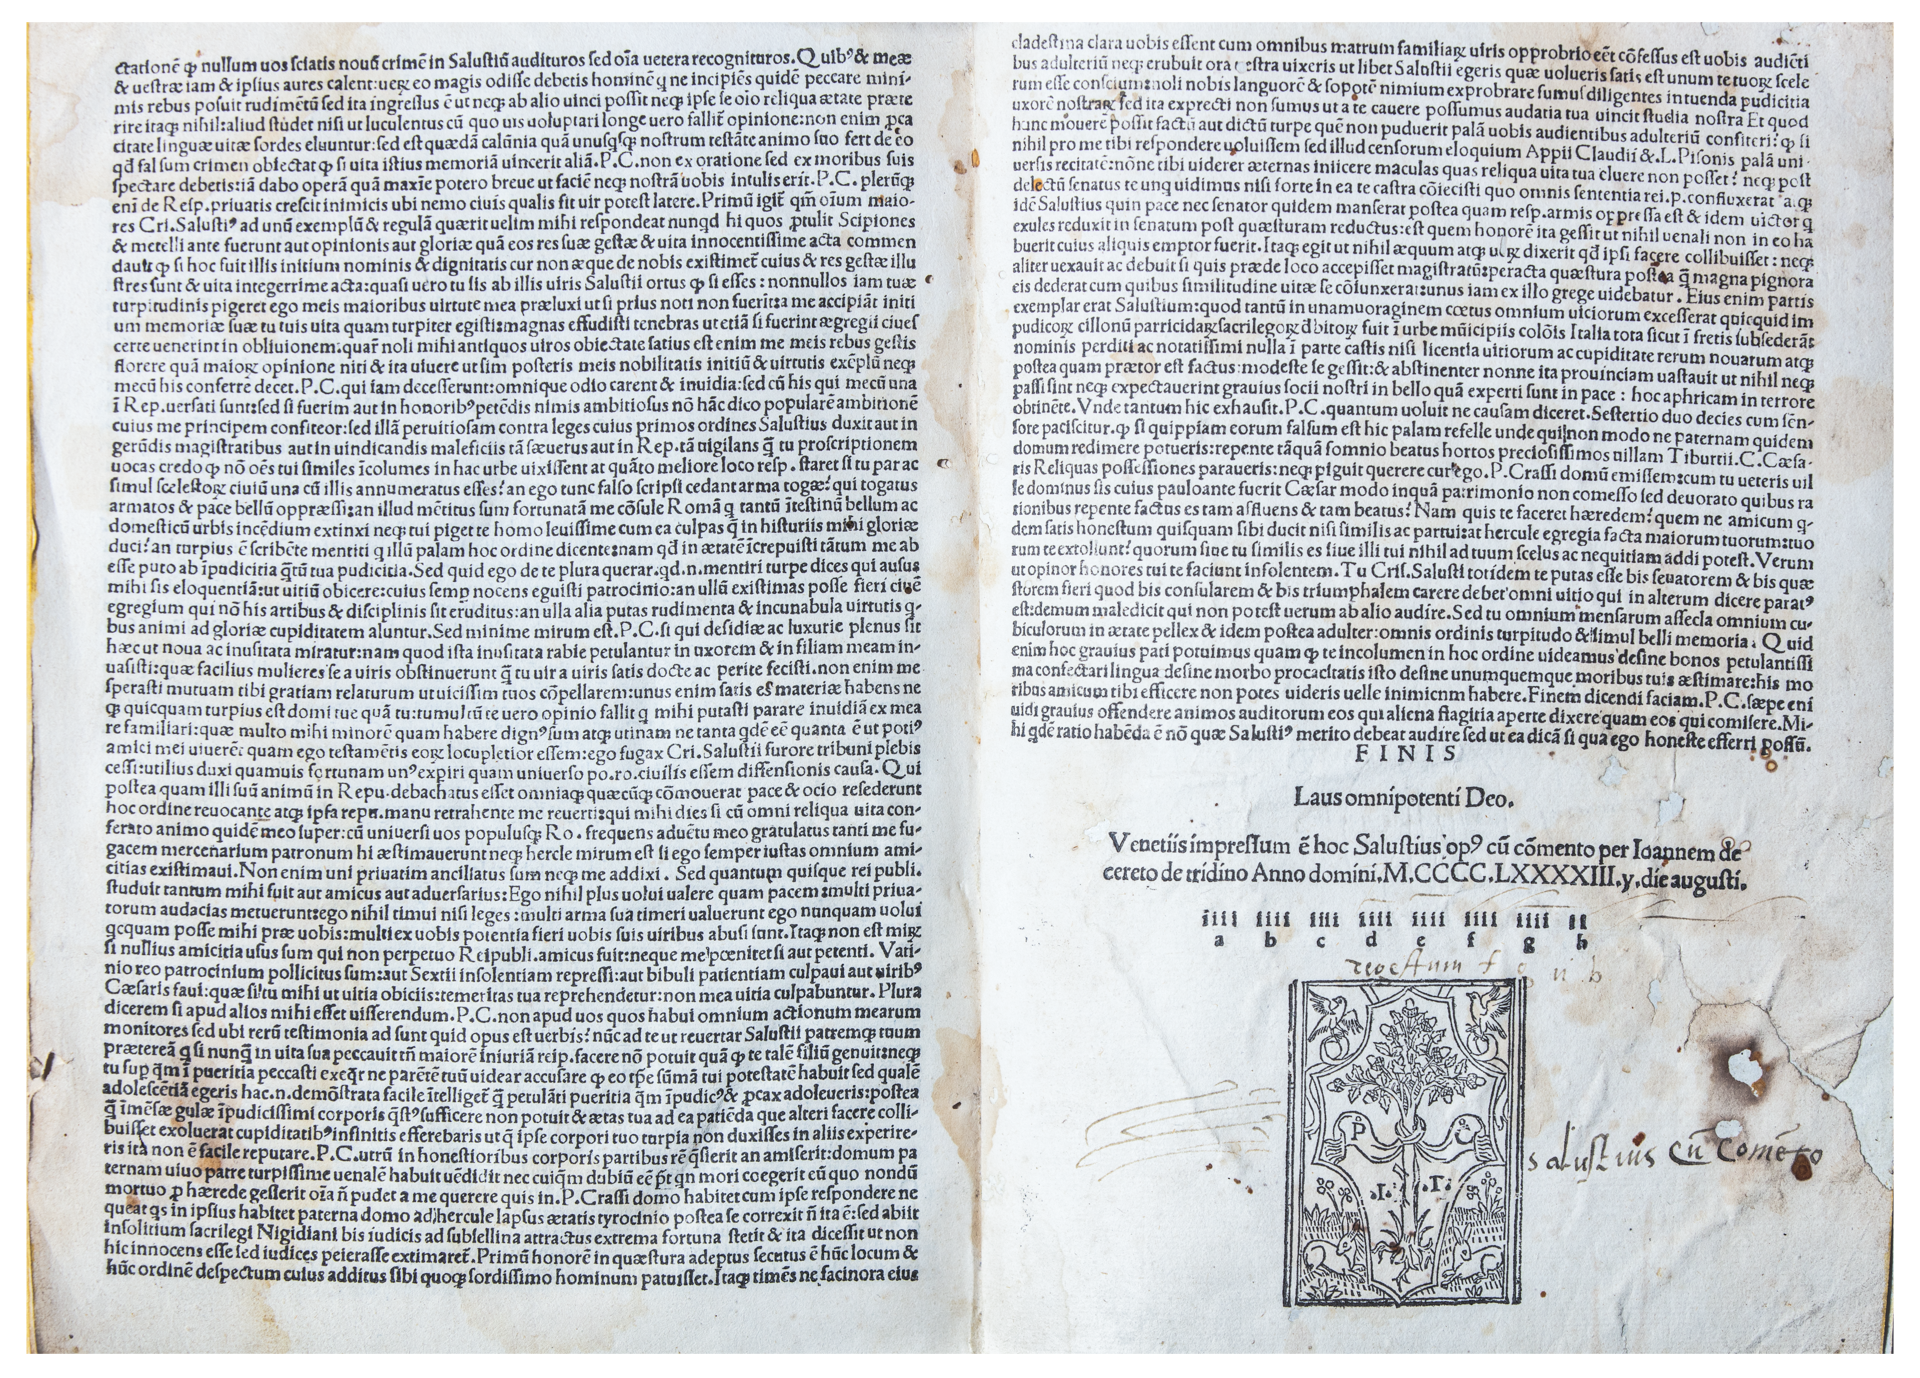 ctationē ꝙ nullum uos sciatis nouũ crimē in Salustiũ audituros sed oīa uetera recognituros. Quibꝰ & meæ
& uestræ iam & ipsius aures calent: ueꝝ eo magis odisse debetis hominē q ne incipiēs quidē peccare mini-
mis rebus posuit rudimētũ sed ita ingressus ē ut neqꝫ ab alio uinci possit neqꝫ ipse se oīo reliqua ætate præte
rire itaqꝫ nihil: aliud studet nisi ut luculentus cũ quo uis uoluptari longe uero fallit̃ opinione: non enim ꝑca
citate linguæ uitæ sordes eluuntur: sed est quædā calũnia quā unusqsqꝫ nostrum testāte animo suo fert de eo
qđ falsum crimen obiectat ꝙ si uita istius memoriā uincerit aliā. P.C. non ex oratione sed ex moribus suis
spectare debetis: iā dabo operā quā maxīe potero breue ut faciē neqꝫ nostrā uobis intulis erit. P.C. plerũqꝫ
eni de Resp. priuatis crescit inimicis ubi nemo ciuis qualis sit uir potest latere. Primũ igit̃ qm̃ oīum maio-
res Cri. Salustiꝰ ad unũ exemplũ & regulā quærit uelim mihi respondeat nunqđ hi quos ꝓtulit Scipiones
& metelli ante fuerunt aut opinionis aut gloriæ quā eos res suæ gestæ & uita innocentissime acta commen
dauit ꝙ si hoc fuit illis initium nominis & dignitatis cur non æque de nobis existimet̃ cuius & res gestæ illu
stres sunt & uita integerrime acta: quasi uero tu sis ab illis uiris Salustii ortus ꝙ si esses: nonnullos iam tuæ
turpitudinis pigeret ego meis maioribus uirtute mea præluxi ut si prius noti non fuerit: a me accipiāt initi
um memoriæ suæ tu tuis uita quam turpiter egisti: magnas effudisti tenebras ut etiā si fuerint ægregii ciues
certe uenerint in obliuionem: quar̃ noli mihi antiquos uiros obiectate satius est enim me meis rebus gestis
florere quā maioꝝ opinione niti & ita uiuere ut sim posteris meis nobilitatis initiũ & uirtutis exēplũ neqꝫ
mecũ his conferrē decet. P.C. qui iam decesserunt: omnique odio carent & inuidia: sed cũ his qui mecũ una
ī Rep. uersati sunt: sed si fuerim aut in honoribꝰ petēdis nimis ambitiosus nō hāc dico popularē ambitionē
cuius me principem confiteor: sed illā peruitiosam contra leges cuius primos ordines Salustius duxit aut in
gerũdis magistratibus aut in uindicandis maleficiis tā sæuerus aut in Rep. tā uigilans q̃ tu proscriptionem
uocas credo ꝙ nō oēs tui similes īcolumes in hac urbe uixissent at quāto meliore loco resp. staret si tu par ac
simul scelestoꝝ ciuiũ una cũ illis annumeratus esses? an ego tunc falso scripsi cedant arma togæ? qui togatus
armatos & pace bellũ oppræssi: an illud mētitus sum fortunatā me cōsule Romā q tantũ ītestinũ bellum ac
domesticũ urbis incēdium extinxi neqꝫ tui piget te homo leuissime cum ea culpas q̃ in histuriis mihi gloriæ
duci? an turpius ē scribēte mentiti q illũ palam hoc ordine dicente: nam qđ in ætatē īcrepuisti tātum me ab
esse puto ab īpudicitia q̃tũ tua pudicitia. Sed quid ego de te plura querar. qd.n. mentiri turpe dices qui ausus
mihi sis eloquentiā: ut uitiũ obicere: cuius semp nocens eguisti patrocinio: an ullũ existimas posse fieri ciuē
egregium qui nō his artibus & disciplinis sit eruditus: an ulla alia putas rudimenta & incunabula uirtutis q-
bus animi ad gloriæ cupiditatem aluntur. Sed minime mirum est. P.C. si qui desidiæ ac luxurie plenus sit
hæc ut noua ac inusitata miratur: nam quod ista inusitata rabie petulantur in uxorem & in filiam meam in-
uasisti: quæ facilius mulieres se a uiris obstinuerunt q̃ tu uir a uiris satis docte ac perite fecisti. non enim me
sperasti mutuam tibi gratiam relaturum ut uicissim tuos cōpellarem: unus enim satis est materiæ habens ne
ꝙ quicquam turpius est domi tue quā tu: tumultũ te uero opinio fallit q mihi putasti parare inuidiā ex mea
re familiari: quæ multo mihi minorē quam habere dignꝰ sum atqꝫ utinam ne tanta qdē eē quanta ē ut potiꝰ
amici mei uiuerēt quam ego testamētis eoꝝ locupletior essem: ego fugax Cri. Salustii furore tribuni plebis
cessi: utilius duxi quamuis fortunam unꝰ expiri quam uniuerso po.ro. ciuilis essem diffensionis causa. Qui
postea quam illi suũ animũ in Repu. debachatus esset omniaqꝫ quæcũqꝫ cōmouerat pace & ocio resederunt
hoc ordine reuocante atqꝫ ipsa repu. manu retrahente me reuerti: qui mihi dies si cũ omni reliqua uita con-
ferato animo quidē meo super: cũ uniuersi uos populusqꝫ Ro. frequens aduētu meo gratulatus tanti me fu-
gacem mercenarium patronum hi æstimauerunt neqꝫ hercle mirum est si ego semper iustas omnium ami-
citias existimaui. Non enim uni priuatim ancillatus sum neqꝫ me addixi. Sed quantum quisque rei publi.
studuit tantum mihi fuit aut amicus aut aduersarius: Ego nihil plus uolui ualere quam pacem: multi priua-
torum audacias metuerunt: ego nihil timui nisi leges: multi arma sua timeri ualuerunt ego nunquam uolui
qcquam posse mihi præ uobis: multi ex uobis potentia fieri uobis suis uiribus abusi sunt. Itaqꝫ non est miꝝ
si nullius amicitia usus sum qui non perpetuo Reipubli. amicus fuit: neque me pœnitet si aut petenti. Vati-
nio reo patrocinium pollicitus sum: aut Sextii insolentiam repressi: aut bibuli patientiam culpaui aut uiribꝰ
Cæsaris faui: quæ si tu mihi ut uitia obiciis: temeritas tua reprehendetur: non mea uitia culpabuntur. Plura
dicerem si apud alios mihi esset uisserendum. P.C. non apud uos quos habui omnium actionum mearum
monitores sed ubi rerũ testimonia ad sunt quid opus est uerbis? nũc ad te ut reuertar Salustii patremqꝫ tuum
prætereā q si nunq̃ in uita sua peccauit tñ maiorē iniuriā reip. facere nō potuit quā ꝙ te talē filiũ genuit: neqꝫ
tu sup qm̃ ī pueritia peccasti exeqr̃ ne parētē tuũ uidear accusare ꝙ eo tp̃e sũmā tui potestatē habuit sed qualē
adolescētiā egeris hac.n. demōstrata facile ītelliget̃ q̃ petulāti pueritia q̃m īpudicꝰ & ꝓcax adoleueris: postea
q̃ īmēsæ gulæ īpudicissimi corporis q̃stꝰ sufficere non potuit & ætas tua ad ea patiēda que alteri facere colli-
buisset exoluerat cupiditatibꝰ infinitis efferebaris ut q̃ ipse corpori tuo turpia non duxisses in aliis experire-
ris ita non ē facile reputare. P.C. utrũ in honestioribus corporis partibus rē q̃sierit an amiserit: domum pa
ternam uiuo patre turpissime uenalē habuit uēdidit nec cuiqm̃ dubiũ eē pt̃ qn mori coegerit eũ quo nondũ
mortuo ꝑ hærede gesserit oīa ñ pudet a me querere quis in. P. Crassi domo habitet cum ipse respondere ne
queat qs in ipsius habitet paterna domo ad hercule lapsus ætatis tyrocinio postea se correxit ñ ita ē: sed abiit
insolitium sacrilegi Nigidiani bis iudicis ad subsellina attractus extrema fortuna stetit & ita dicessit ut non
hic innocens esse sed iudices peierasse extimaret̃. Primũ honorē in quæstura adeptus secutus ē hũc locum &
hũc ordinē despectum cuius additus sibi quoqꝫ sordissimo hominum patuisset. Itaqꝫ timēs ne facinora eius
cladestina clara uobis essent cum omnibus matrum familiaꝝ uiris opprobrio eēt cōfessus est uobis audiēti
bus adulteriũ neqꝫ erubuit ora uestra uixeris ut libet Salustii egeris quæ uolueris satis est unum te tuoꝝ scele
rum esse conscium: noli nobis languorē & sopotē nimium exprobrare sumus diligentes in tuenda pudicitia
uxorē nostraꝝ sed ita exprecti non sumus ut a te cauere possumus audatia tua uincit studia nostra Et quod
hunc mouerē possit factũ aut dictũ turpe quē non puduerit palā uobis audientibus adulteriũ confiteri? ꝙ si
nihil pro me tibi respondere uoluissem sed illud censorum eloquium Appii Claudii & L. Pisonis palā uni-
uersis recitatē: nōne tibi uiderer æternas iniicere maculas quas reliqua uita tua eluere non posset? neqꝫ post
delectũ senatus te unq uidimus nisi forte in ea te castra cōiecisti quo omnis sententia rei.p. confluxerat a.qꝫ
idē Salustius quin pace nec senator quidem manserat postea quam resp. armis oppressa est & idem uictor q
exules reduxit in senatum post quæsturam reductus: est quem honorē ita gessit ut nihil uenali non in eo ha
buerit cuius aliquis emptor fuerit. Itaqꝫ egit ut nihil æquum atqꝫ ueꝝ dixerit qđ ipsi facere collibuisset: neqꝫ
aliter uexauit ac debuit si quis præde loco accepisset magistratũ: peracta quæstura postea q̃ magna pignora
eis dederat cum quibus similitudine uitæ se cōiunxerat: unus iam ex illo grege uidebatur. Eius enim partis
exemplar erat Salustium: quod tantũ in unamuoraginem cœtus omnium uiciorum excesserat quicquid im
pudicoꝝ cillonũ parricidaꝝ sacrilegoꝝ đbitoꝝ fuit ī urbe mũicipiis colōis Italia tota sicut ī fretis subsederāt
nominis perditi ac notatissimi nulla ī parte castis nisi licentia uitiorum ac cupiditate rerum nouarum atqꝫ
postea quam prætor est factus: modeste se gessit: & abstinenter nonne ita prouinciam uastauit ut nihil neqꝫ
passi sint neqꝫ expectauerint grauius socii nostri in bello quā experti sunt in pace: hoc aphricam in terrore
obtinēte. Vnde tantum hic exhausit. P.C. quantum uoluit ne causam diceret. Sestertio duo decies cum sēn-
sore paciscitur. ꝙ si quippiam eorum falsum est hic palam refelle unde qui non modo ne paternam quidem
domum redimere potueris: repente tāquā somnio beatus hortos preciosissimos uillam Tiburtii. C. Cæsa-
ris Reliquas possessiones paraueris: neqꝫ piguit querere cur ego. P. Crassi domũ emissem: cum tu ueteris uil
le dominus sis cuius pauloante fuerit Cæsar modo inquā patrimonio non comesso sed deuorato quibus ra
tionibus repente factus es tam affluens & tam beatus? Nam quis te faceret hæredem? quem ne amicum q-
dem satis honestum quisquam sibi ducit nisi similis ac partui: at hercule egregia facta maiorum tuorum: tuo
rum te extollunt? quorum siue tu similis es siue illi tui nihil ad tuum scelus ac nequitiam addi potest. Verum
ut opinor honores tui te faciunt insolentem. Tu Cris. Salusti totidem te putas esse bis seuatorem & bis quæ
storem fieri quod bis consularem & bis triumphalem carere debet omni uitio qui in alterum dicere paratꝰ
est: demum maledicit qui non potest uerum ab alio audire. Sed tu omnium mensarum assecla omnium cu-
biculorum in ætate pellex & idem postea adulter: omnis ordinis turpitudo & simul belli memoria. Quid
enim hoc grauius pati potuimus quam ꝙ te incolumen in hoc ordine uideamus desine bonos petulantissi
ma confectari lingua desine morbo procacitatis isto desine unumquemque moribus tuis æstimare: his mo
ribus amicum tibi efficere non potes uideris uelle inimicnm habere. Finem dicendi faciam. P.C. sæpe eni
uidi grauius offendere animos auditorum eos qui aliena flagitia aperte dixere quam eos qui comisere. Mi-
hi qdē ratio habēda ē nō quæ Salustiꝰ merito debeat audire sed ut ea dicā si qua ego honeste efferri possũ.
FINIS
Laus omnipotenti Deo.
Venetiis impressum ē hoc Salustius opꝰ cũ cōmento per Ioannem de
cereto de tridino Anno domini. M.CCCC.LXXXXIII.y.die augusti.
iiii iiii iiii iiii iiii iiii iiii ii
a b c d e f g h
regestum f g n b
P C
.I. .T.
salustius cũ Coměto